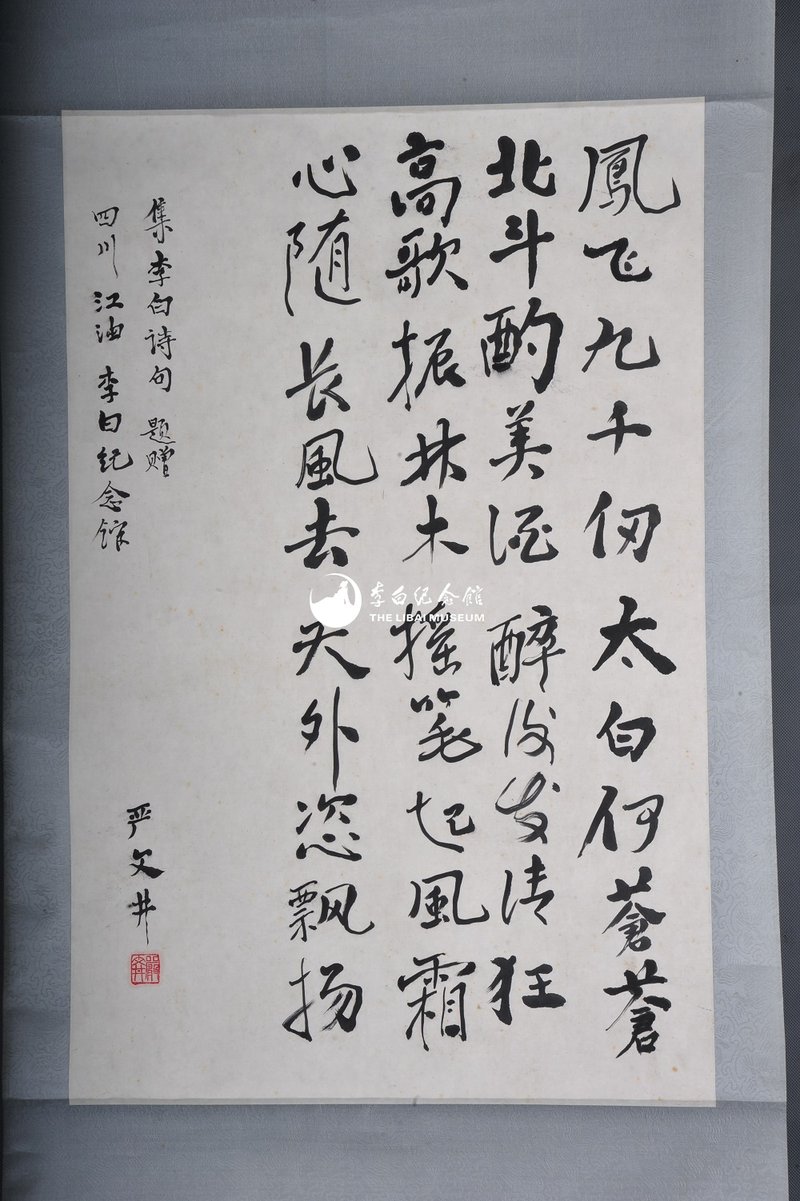 鳳飞九千仞太白何蒼蒼
北斗酌美酒醉后发清狂
高歌振林木摇笔起風霜
心随长風去天外恣飘扬
集李白诗句 题赠
四川江油李白纪念馆
严文井
李白纪念館
THE LIBAI MUSEUM